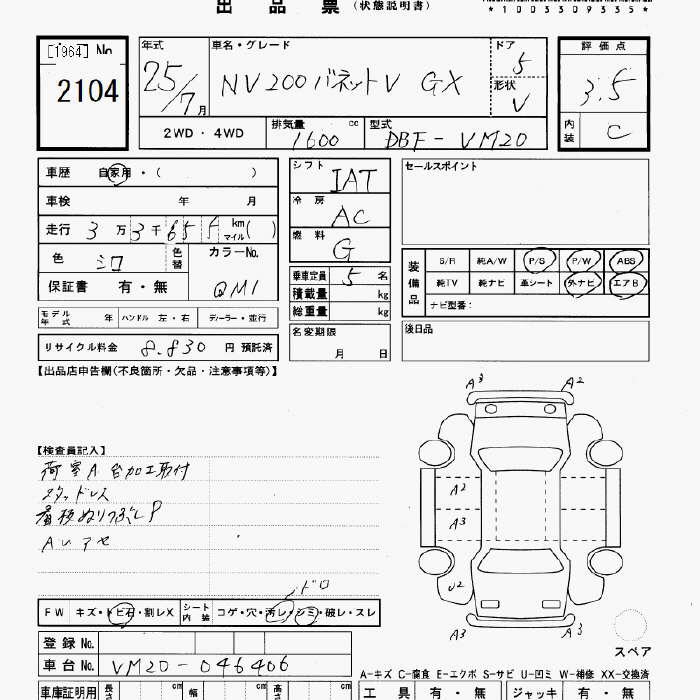 出 品 票 (状態説明書)
*1003309335*
[1964] No
2104
年式 車名・グレード ドア
25/7月 NV200バネットV GX 5
形状 V
2WD・4WD 排気量 1600 cc 型式 DBF-VM20
評価点
3.5
内装 C
車歴 自家用・( )
車検 年 月
走行 3万3千655 km マイル( )
色 シロ 色替 カラーNo. QM1
保証書 有・無
シフト IAT
冷房 AC
燃料 G
乗車定員 5 名
積載量 kg
総重量 kg
名変期限 月 日
セールスポイント
装備品 S/R 純A/W P/S P/W ABS
純TV 純ナビ 革シート 外ナビ エアB
ナビ型番:
後日品
モデル年式 年 ハンドル 左・右 ディーラー・並行
リサイクル料金 8.830 円 預託済
【出品店申告欄(不良箇所・欠品・注意事項等)】
【検査員記入】
荷室A 台加工取付
スタッドレス
看板ぬりつぶしP
AUアセ
ドロ
A3 A2
A2
A3
U2
A3 A3
スペア
FW キズ・トビ石・割レX シート内装 コゲ・穴・汚レ・シミ・破レ・スレ
登録No.
車台No. VM20-046406
A-キズ C-腐食 E-エクボ S-サビ U-凹ミ W-補修 XX-交換済
車庫証明用 長さ cm 幅 cm 高さ cm
工具 有・無 ジャッキ 有・無